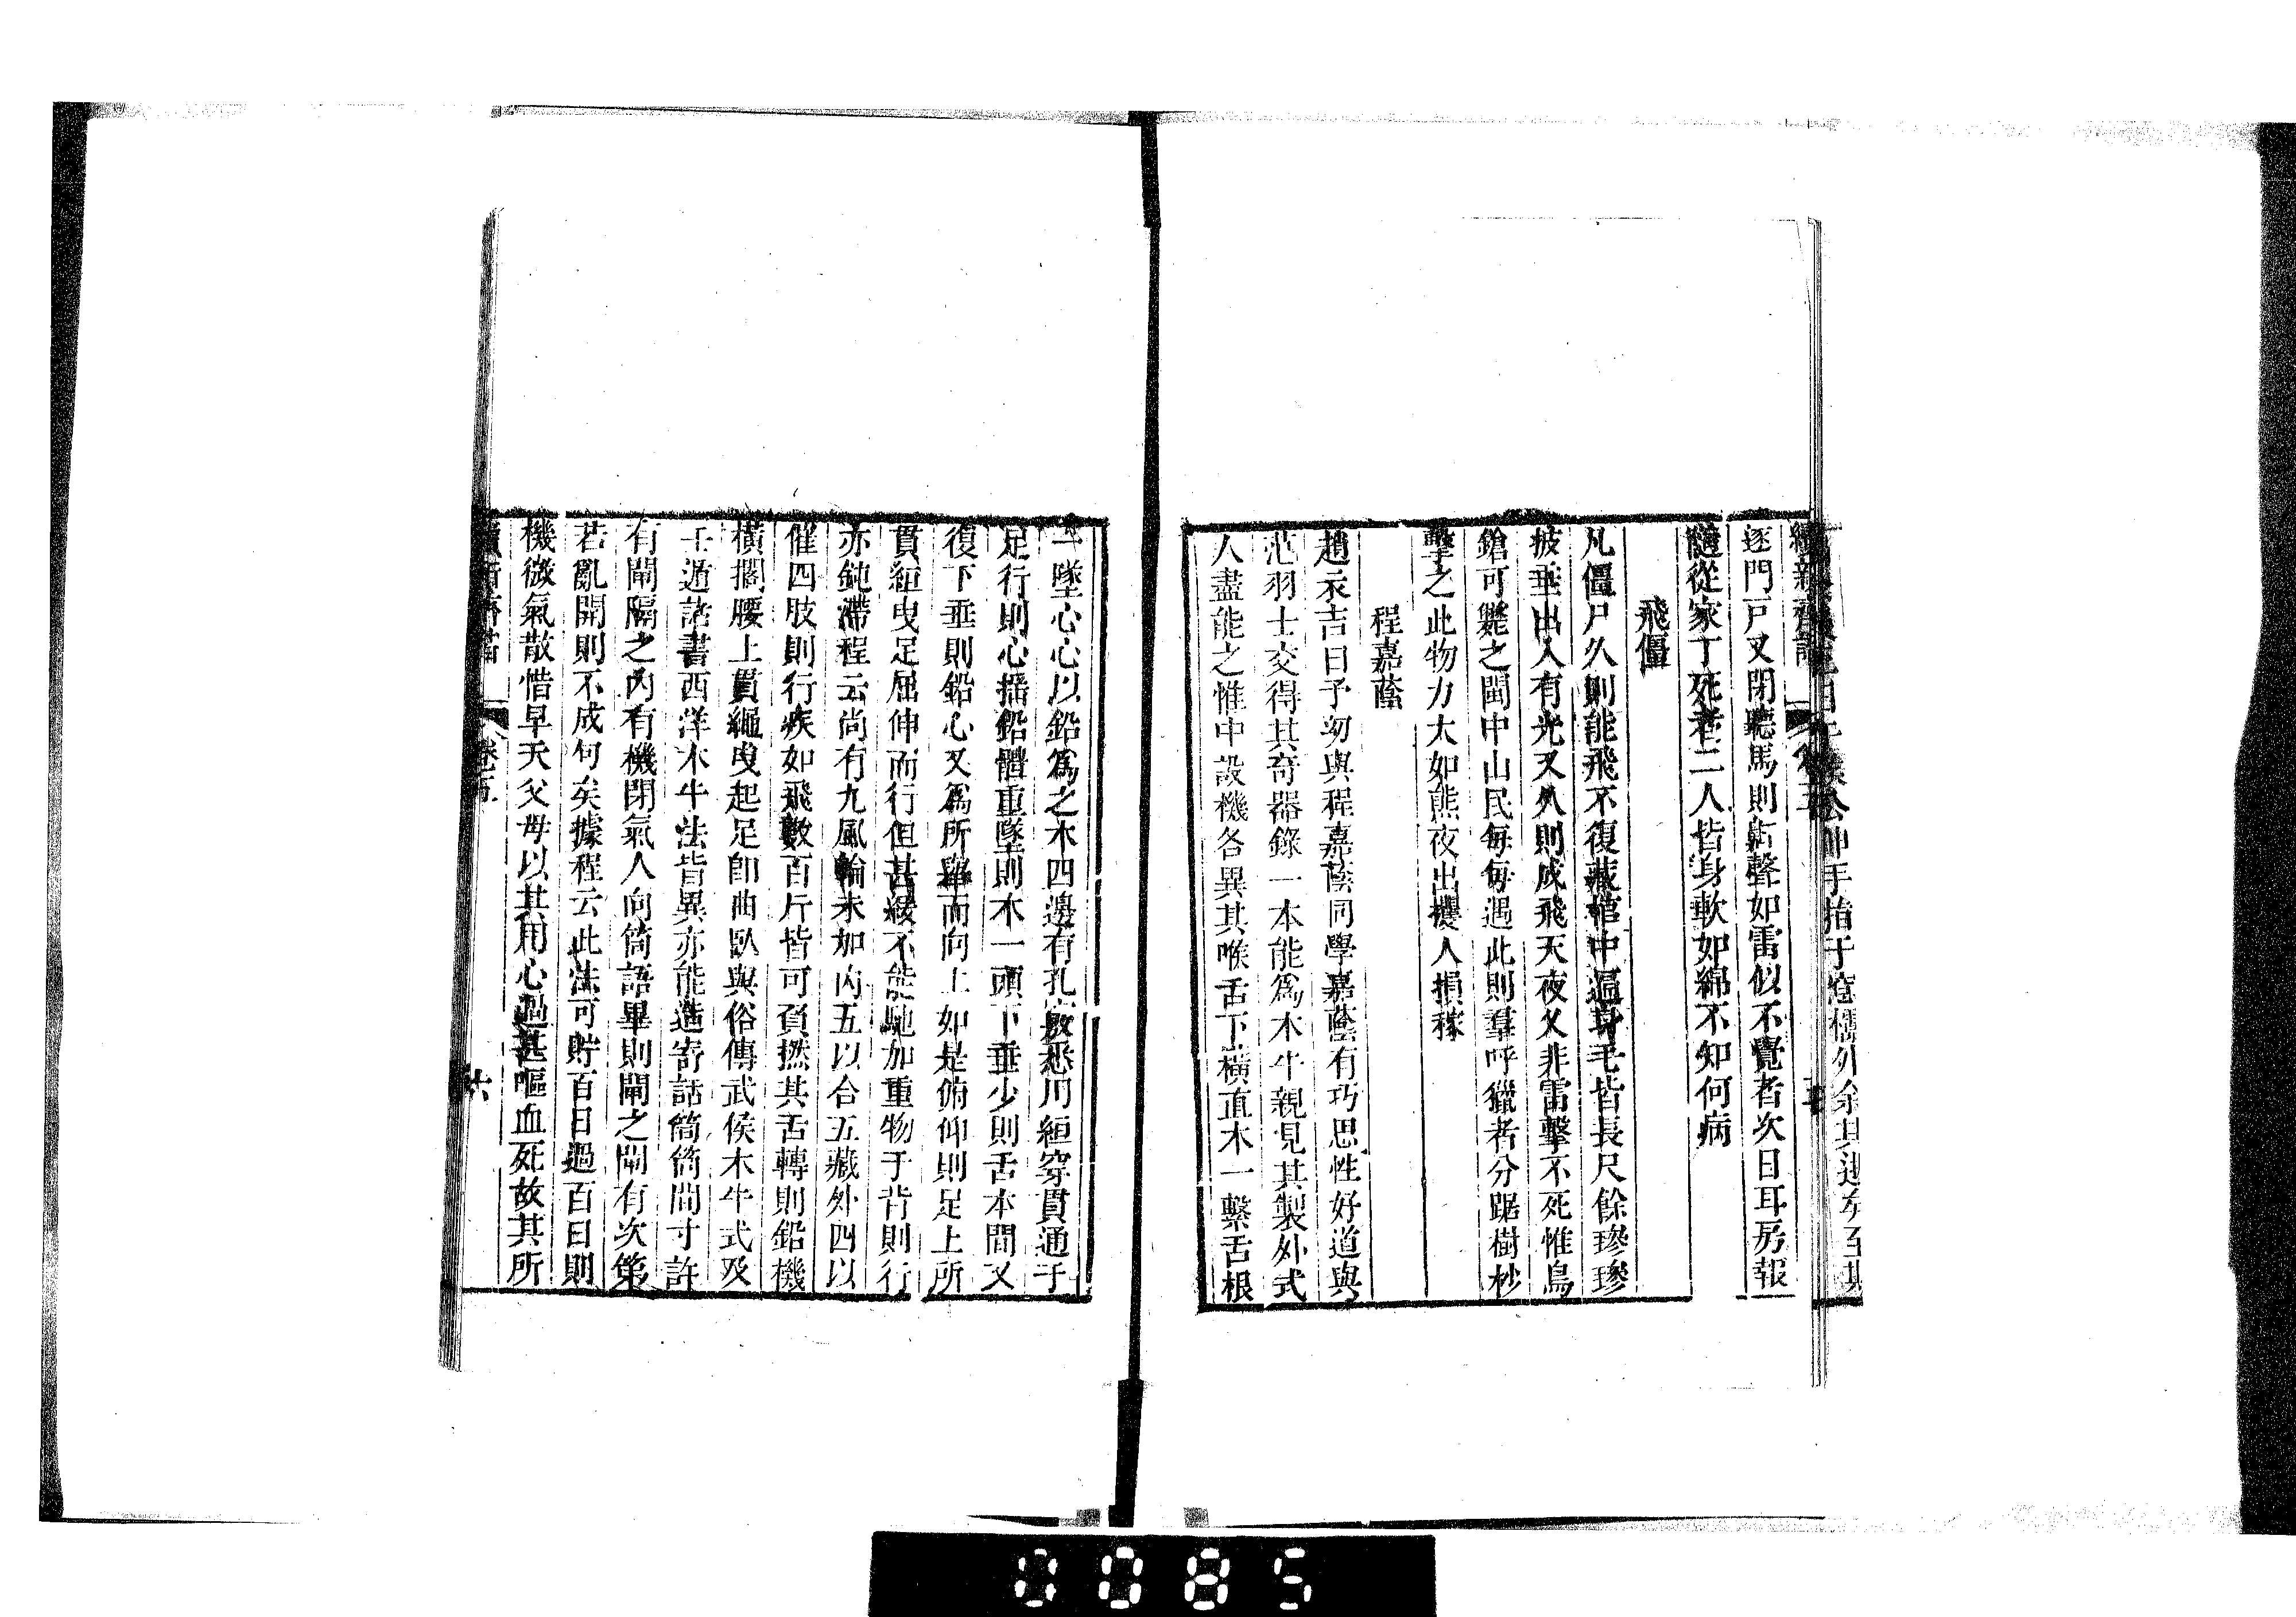 續新齊諧 卷五
逐門戸又閉聽馬則鼾聲如雷似不覺者次日耳房報
隨從家丁死者二人皆身軟如綿不知何病
飛僵
凡僵尸久則能飛不復藏棺中遍身毛皆長尺餘毿毿
披垂出入有光又久則成飛天夜叉非雷擊不死惟鳥
鎗可斃之閩中山民每每遇此則羣呼獵者分踞樹杪
擊之此物力大如熊夜出攫人損稼
程嘉蔭
趙衣吉曰予幼與程嘉蔭同學嘉蔭有巧思性好道與
范羽士交得其奇器錄一本能爲木牛親見其製外式
人盡能之惟中設機各異其喉舌下橫直木一繫舌根
一墜心心以鉛爲之木四邊有孔竅悉用絙穿貫通于
足行則心搖鉛體重墜則木一頭下垂少則舌本間又
復下垂則鉛心又爲所壓而向上如是俯仰則足上所
貫絙曳足屈伸而行但甚緩不能馳加重物于背則行
亦鈍滯程云尚有九風輪未加内五以合五藏外四以
催四肢則行疾如飛數百斤皆可負撚其舌轉則鉛機
橫擱腰上貫繩曳起足卽曲臥與俗傳武侯木牛式及
壬遁諸書西洋木牛法皆異亦能造寄話筒筒間寸許
有閘隔之内有機閉氣人向筒語畢則閘之開有次第
若亂開則不成句矣據程云此法可貯百日過百日則
機微氣散惜早夭父母以其用心過甚嘔血死故其所
卷五
六